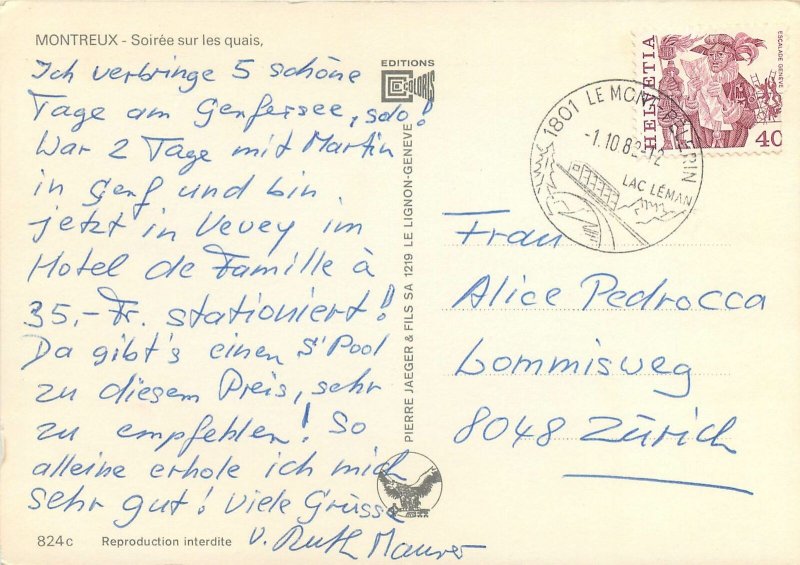 MONTREUX - Soirée sur les quais,
Ich verbringe 5 schöne
Tage am Genfersee, solo!
War 2 Tage mit Martin
in Genf und bin
jetzt in Vevey im
Hotel de Famille à
35.- Fr. stationiert!
Da gibt's einen S'Pool
zu diesem Preis, sehr
zu empfehlen! So
alleine erhole ich mich
sehr gut! Viele Grüsse
v. Ruth Maurer
824c Reproduction interdite
EDITIONS
COLORIS
PIERRE JAEGER & FILS SA 1219 LE LIGNON-GENEVE
HELVETIA
ESCALADE GENÈVE
40
1801 LE MONT-PÈLERIN
-1.10.83-12
LAC LÉMAN
Frau
Alice Pedrocca
Lommisweg
8048 Zürich